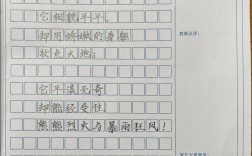 它相貌平平，
却用娇嫩的身躯
妆点大地。
它平淡无奇
却能经受住
熊熊烈火与暴雨狂风！
教师点评：